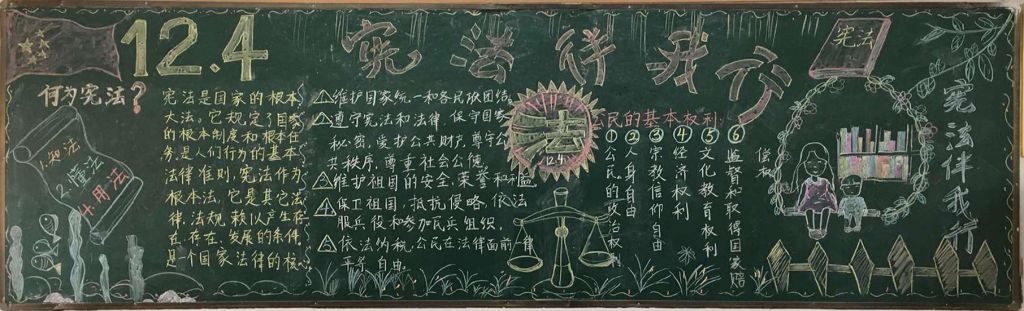 12.4
宪法伴我行
何为宪法?
1.知法
2.懂法
+用法
宪法是国家的根本
大法。它规定了国家
的根本制度和根本任
务,是人们行为的基本
法律准则,宪法作为
根本法,它是其它法
律、法规赖以产生存
在、存在、发展的条件,
是一个国家法律的核
维护国家统一和各民族团结。
遵守宪法和法律,保守国家
秘密,爱护公共财产,尊守公
共秩序,尊重社会公德
维护祖国的安全、荣誉和利益
保卫祖国,抵抗侵略,依法
服兵役和参加民兵组织。
依法纳税,公民在法律面前一律
平等,自由。
法
12.4
公民的基本权利:
①公民的政治权利
②人身自由
③宗教信仰自由
④经济权利
⑤文化教育权利
⑥监督和取得国家赔
偿权
宪法
宪法伴我行